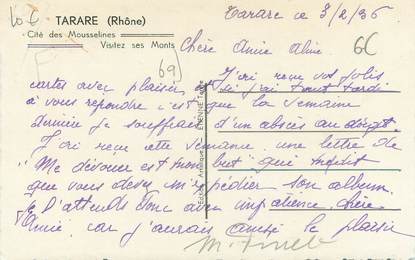 10 €
TARARE (Rhône)
Cité des Mousselines
Visitez ses Monts
69
6C
Tarare ce 3/2/36
Chère Amie Aline
J'ai reçu vos jolis
cartes avec plaisir, et si j'ai tant tardé
à vous répondre c'est que la semaine
dernière je souffrais d'un abcès au doigt.
J'ai reçu cette semaine une lettre de
"Me dévouer est mon but" qui me dit
que vous devez m'expédier son album.
Je l'attends donc avec impatience, chère
Amie, car j'aurai ainsi le plaisir